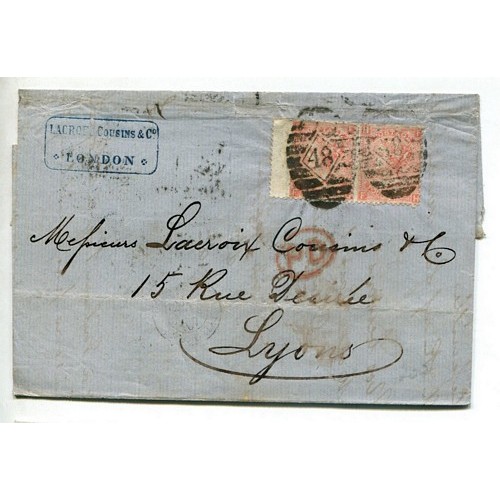 LACROIX COUSINS & Co
LONDON
48
PD
Messieurs Lacroix Cousins & Co
15 Rue
Lyons